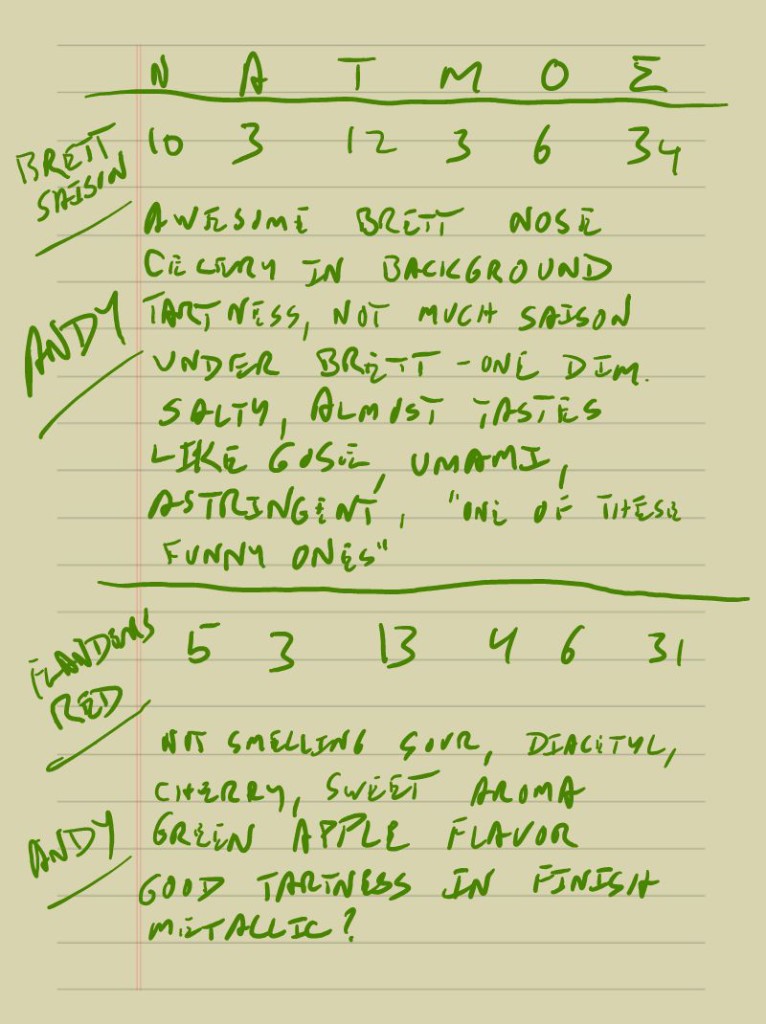 N A T M O Σ
BRETT SAISON
10 3 12 3 6 34
ANDY
AWESOME BRETT NOSE
CELERY IN BACKGROUND
TARTNESS, NOT MUCH SAISON
UNDER BRETT - ONE DIM.
SALTY, ALMOST TASTES
LIKE GOSE, UMAMI,
ASTRINGENT, "ONE OF THESE
FUNNY ONES"
FLANDERS RED
5 3 13 4 6 31
ANDY
NOT SMELLING SOUR, DIACETYL,
CHERRY, SWEET AROMA
GREEN APPLE FLAVOR
GOOD TARTNESS IN FINISH
METALLIC?